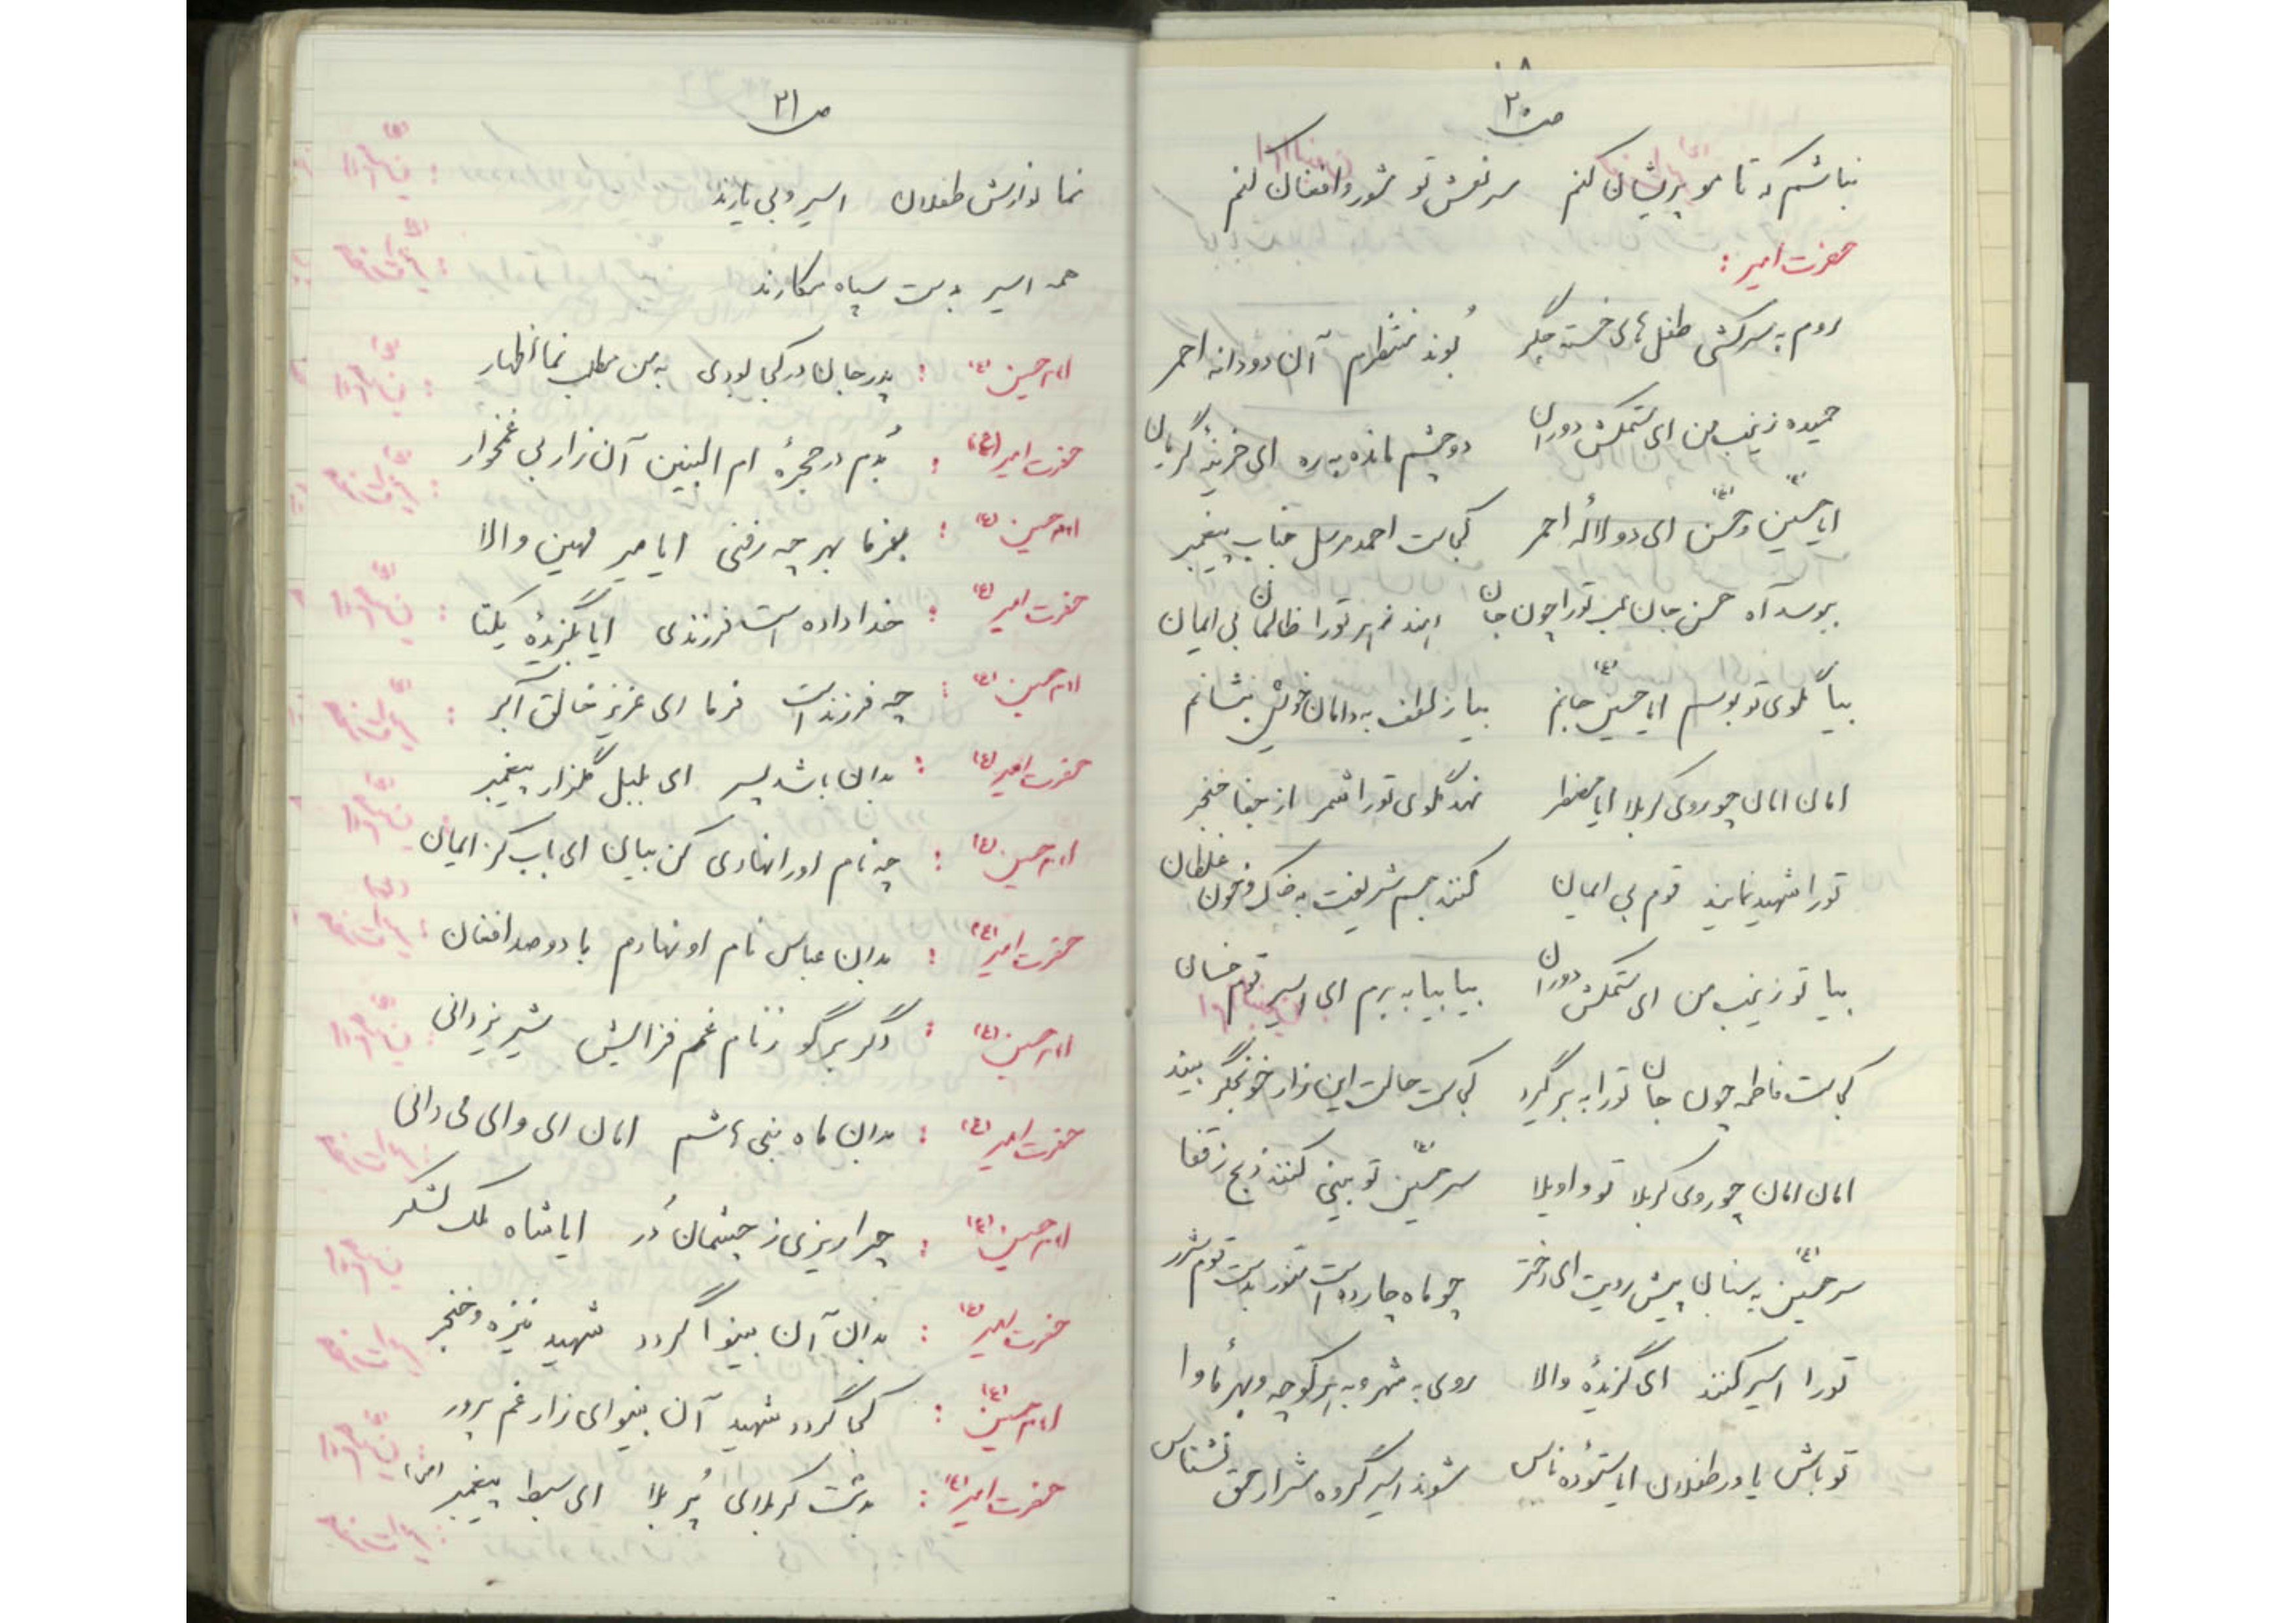 ص ۲۰
نباشم که تا مو پریشان کنم سر نعش تو شور و افغان کنم
حضرت امیر :
روم به سرکشی طفل های خسته جگر بُوند منتظرم آن دو دانه احمر
حمیده زینب من ای ستمکش دوران دو چشم مانده به ره ای حزینهٔ گریان
ایا حسین (ع) و حسن (ع) ای دو لالهٔ احمر کجاست احمد مرسل جناب پیغمبر
ببوسد آه حسن جان لب تو را چون جان دهند زهر تو را ظالمان بی ایمان
بیا گلوی تو بوسم ایا حسین (ع) جانم بیا ز لطف به دامان خویش بنشانم
امان امان چو روی کربلا ایا مضطر نهد گلوی تو را شمر از جفا خنجر
تو را شهید نمایند قوم بی ایمان کنند جسم شریفت به خاک و خون غلطان
بیا تو زینب من ای ستمکش دوران بیا بیا به برم ای اسیر قوم خسان
کجاست فاطمه چون جان تو را به بر گیرد کجاست حالت این زار خونجگر بیند
امان امان چو روی کربلا تو واویلا سر حسین (ع) تو بینی کنند ذبح ز قفا
سر حسین (ع) به سنان پیش رویت ای دختر چو ماه چارده است منور بدست قوم شرر
تو را اسیر کنند ای گزیدهٔ والا روی به شهر و به هر کوچه و بهر مأوا
تو باش یاور طفلان ایا ستوده ناس شوند اسیر گروه شرار حق نشناس
ص ۲۱
نما نوازش طفلان اسیر و بی یارند
همه اسیر بدست سپاه مکارند
امام حسین (ع) : پدر جان در کجا بودی به من مطلب نما اظهار
حضرت امیر (ع) : بُدم در حجرهٔ ام البنین آن زار بی غمخوار
امام حسین (ع) : بفرما بهر چه رفتی ایا میر مهین والا
حضرت امیر (ع) : خدا داده است فرزندی ایا بگزیدهٔ یکتا
امام حسین (ع) : چه فرزند است فرما ای عزیز خالق اکبر
حضرت امیر (ع) : بدان باشد پسر ای بلبل گلزار پیغمبر
امام حسین (ع) : چه نام او را نهادی کن بیان ای باب کز ایمان
حضرت امیر (ع) : بدان عباس نام او نهادم با دو صد افغان
امام حسین (ع) : دگر برگو ز نام غم فزایش شیر یزدانی
حضرت امیر (ع) : بدان ماه بنی هاشم امان ای وای می دانی
امام حسین (ع) : چرا ریزی ز چشمان دُر ایا شاه ملک لشکر
حضرت امیر (ع) : بدان آن بینوا گردد شهید نیزه و خنجر
امام حسین (ع) : کجا گردد شهید آن بینوای زار غم پرور
حضرت امیر (ع) : بدشت کربلای پُر بلا ای سبط پیغمبر (ص)